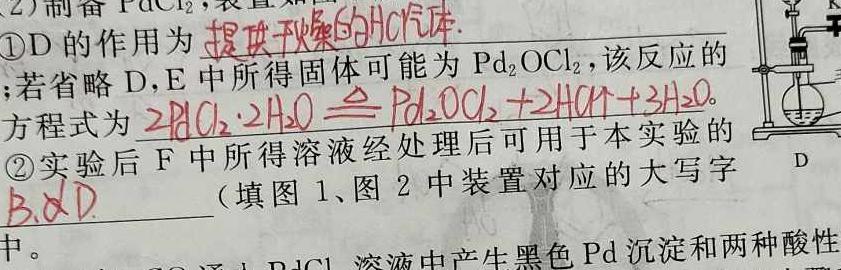 (2)制备 PdCl₂,装置如
①D 的作用为 提供干燥的HCl气体.
;若省略 D,E 中所得固体可能为 Pd₂OCl₂,该反应的
方程式为 2PdCl₂·2H₂O ≜ Pd₂OCl₂+2HCl↑+3H₂O。
②实验后 F 中所得溶液经处理后可用于本实验的
B.或D. (填图 1、图 2 中装置对应的大写字
中。
PdCl 溶液中产生黑色 Pd 沉淀和两种酸性
D